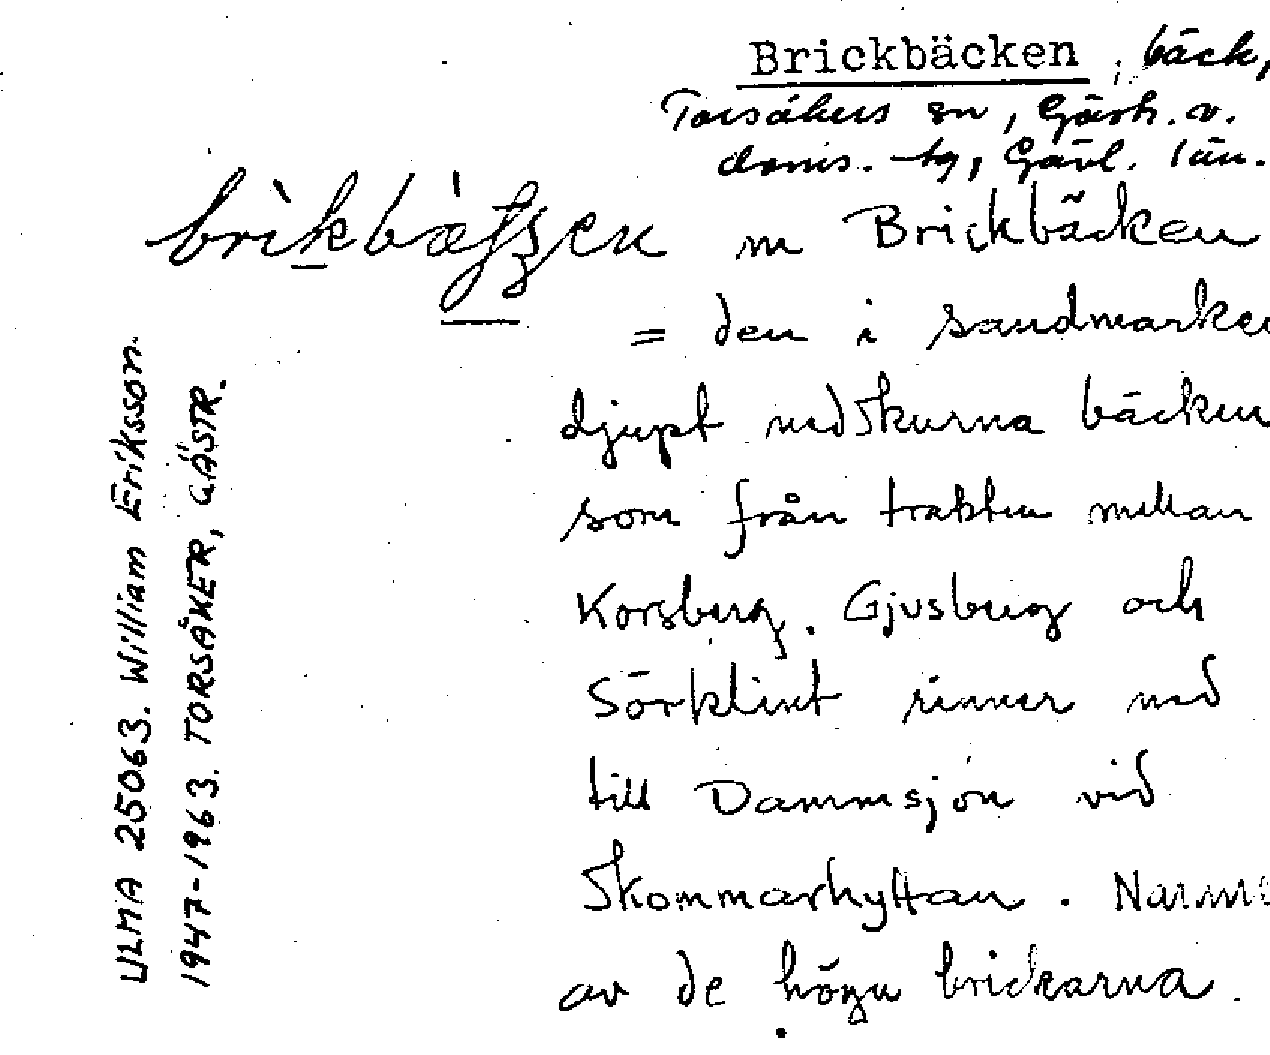 Brickbäcken, bäck,
Torsåkers sn, Gästr. v.
doms. tg, Gävl. län.
m Brickbäcken
= den i sandmarken
djupt nedskurna bäcken
som från trakten mellan
Korsberg, Gjusberg och
Sörklint rinner ned
till Dammsjön vid
Skommarhyttan. Namne
av de höga brickarna.
ULMA 25063. William Eriksson.
1947-1963. TORSÅKER, GÄSTR.